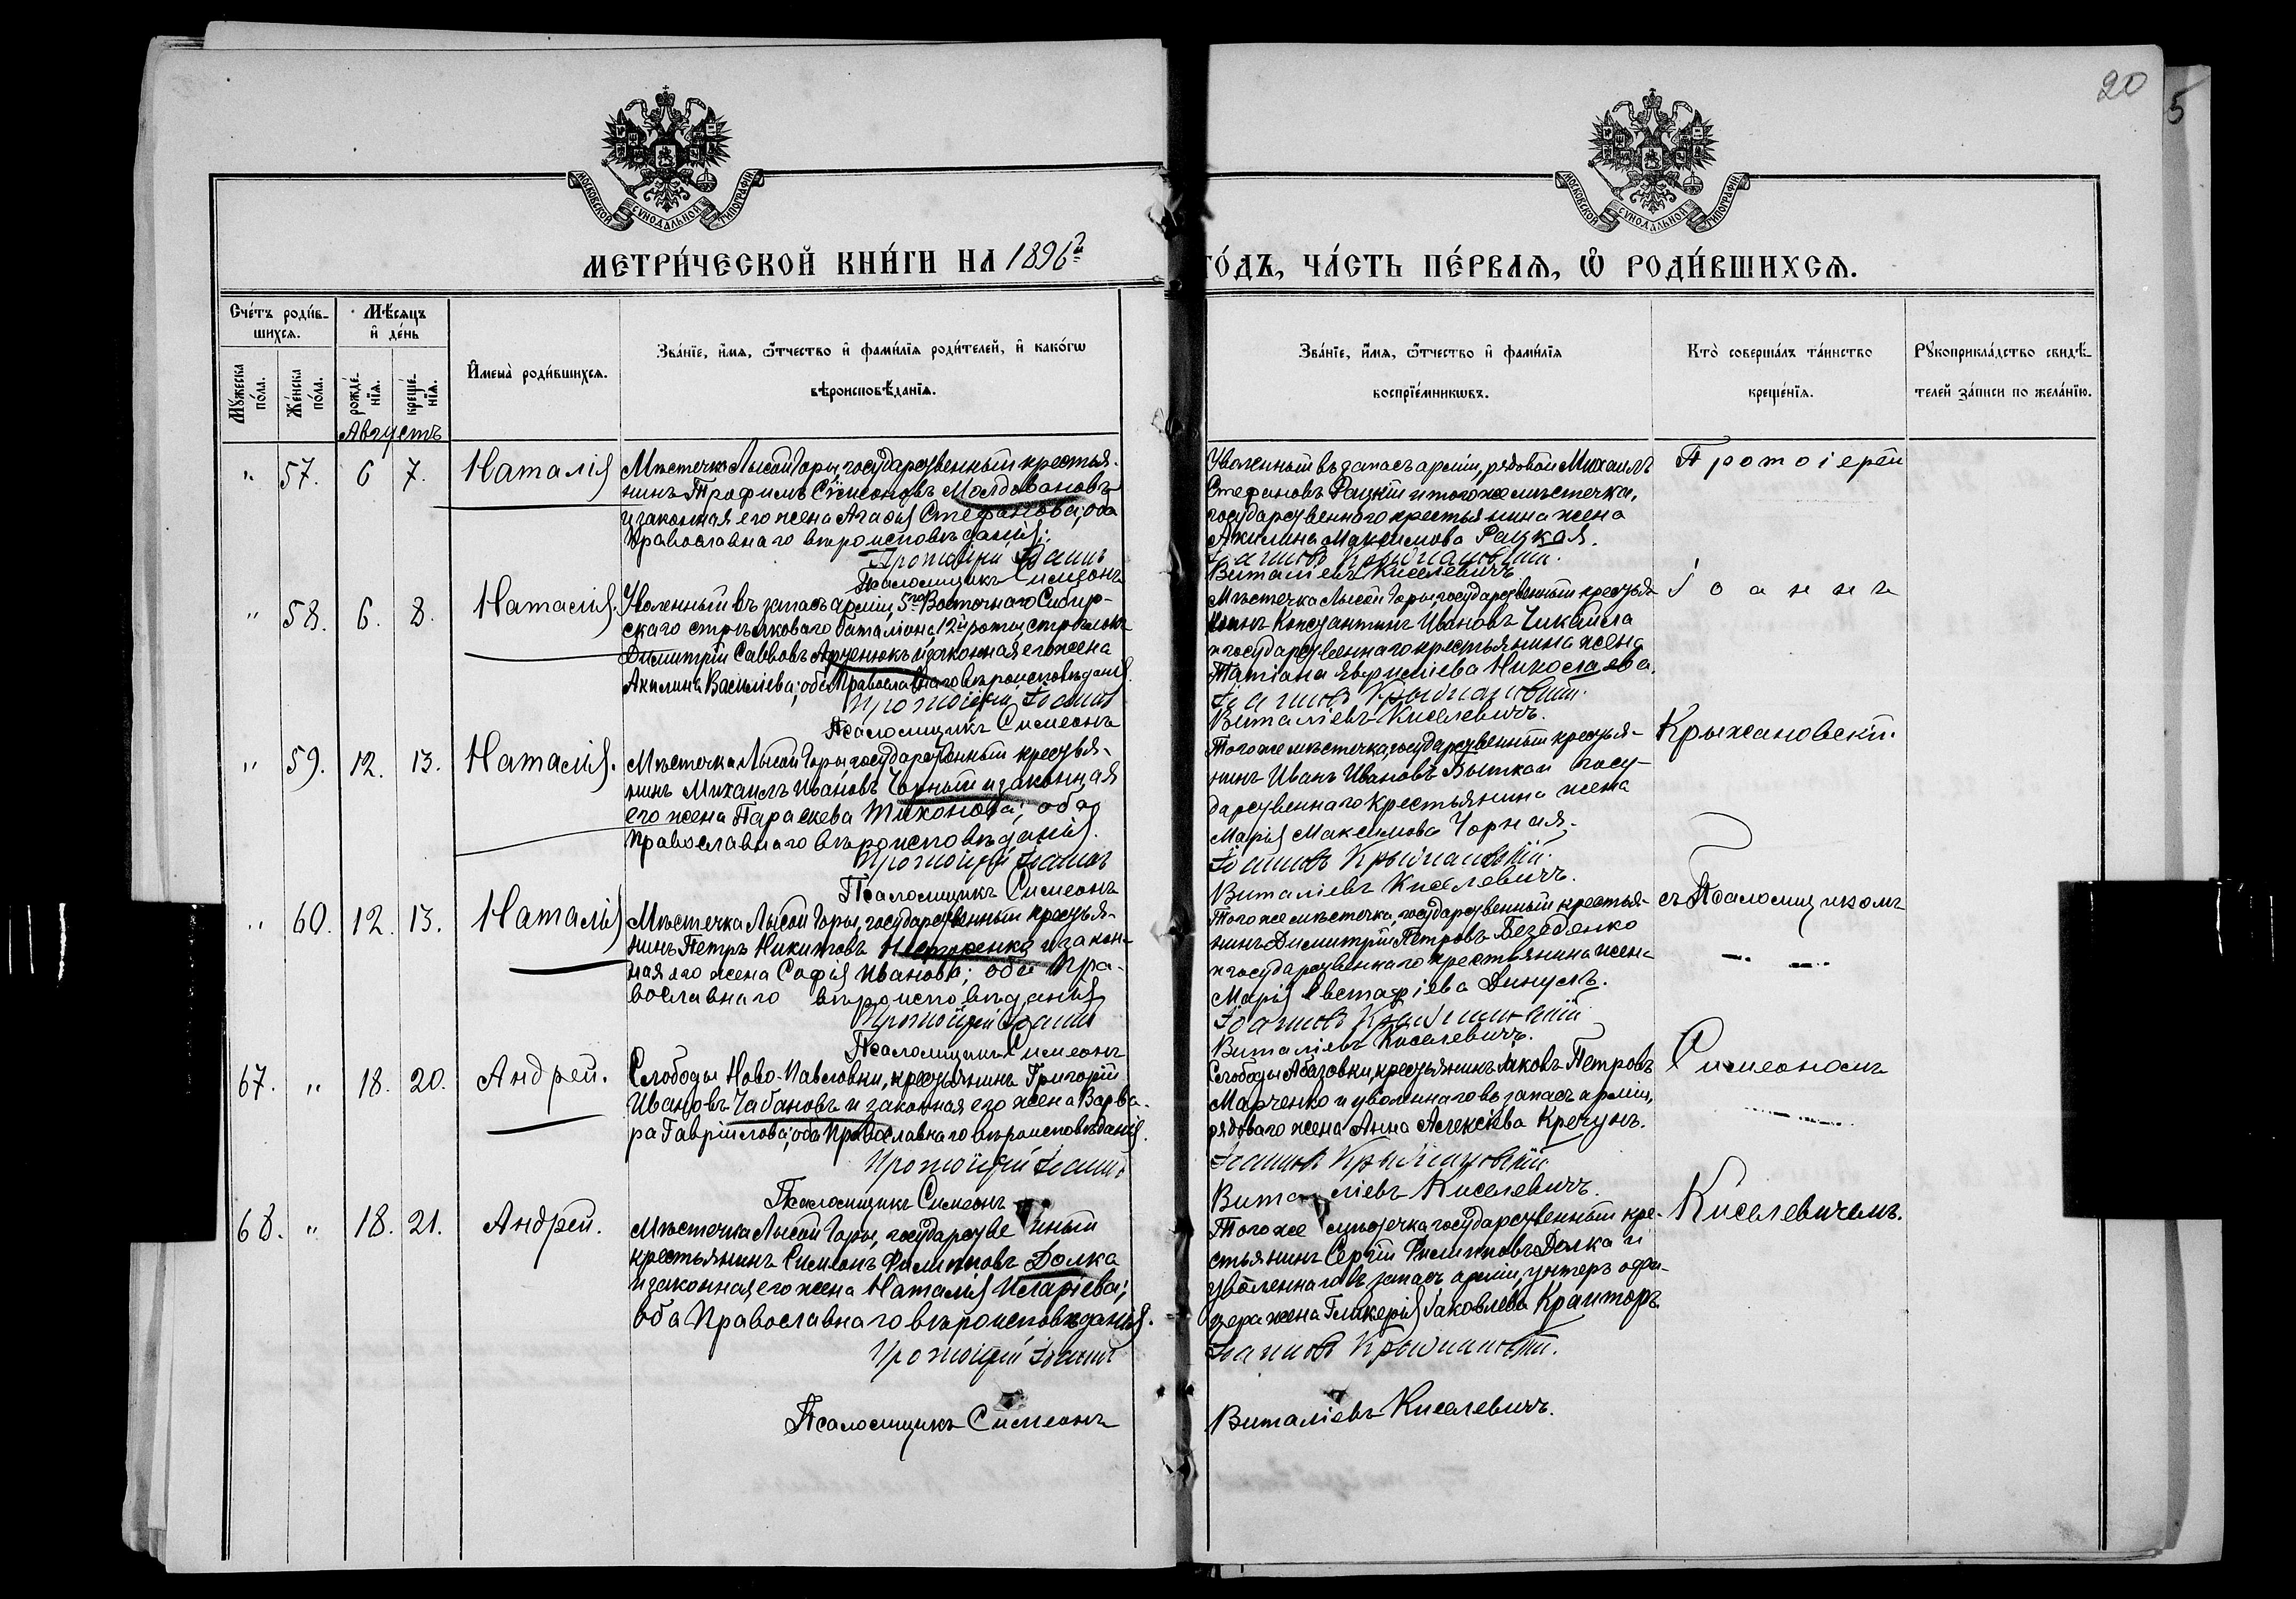 20
5
МОСКОВСКОЙ СѴНОДАЛЬНОЙ ТИПОГРАФІИ
МОСКОВСКОЙ СѴНОДАЛЬНОЙ ТИПОГРАФІИ
МЕТРИ́ЧЕСКОЙ КНИ́ГИ НА 1896 г.
ГО́ДЪ, ЧА́СТЬ ПЕ́РВАѦ, Ѽ РОДИ́ВШИХСѦ.
Сче́тъ роди́в-
шихсѧ.
Мꙋжеска по́ла.
Же́нска по́ла.
Мѣ́сѧцъ
и҆ де́нь
рожде́-
нїѧ.
креще́-
нїѧ.
Августъ
И҆мена̀ роди́вшихсѧ.
Зва́нїе, и҆́мѧ, ѻ҆́тчество и҆ фами́лїѧ роди́телей, и҆ како́гѡ
вѣроисповѣ́данїѧ.
Зва́нїе, и҆́мѧ, ѻ҆́тчество и҆ фами́лїѧ
воспрїе́мникѡвъ.
Кто̀ соверша́лъ та́инство
креще́нїѧ.
Рꙋкоприкла́дство свидѣ́-
телей за́писи по жела́нїю.
" 57. 6 7. Наталія
Мѣстечка Лысой Горы, государственный крестья-
нинъ Трофимъ Сѵмеоновъ Молдовановъ
и законная его жена Агафія Стефанова; оба
Православнаго вѣроисповѣданія.
Протоіерей Іоаннъ
Псаломщикъ Симеонъ
Уволенный въ запасъ арміи, рядовой Михаилъ
Стефановъ Рацкій и тогоже мѣстечка,
государственнаго крестьянина жена
Акилина Максимова Рацкая.
Іоанновъ Крыжановскій.
Виталіевъ Киселевичъ
Протоіерей
" 58. 6. 8. Наталія.
Уволенный въ запасъ арміи, 5го Восточнаго Сибир-
скаго стрѣлковаго баталіона, 12й роты, стрѣлокъ
Димитрій Саввовъ и законная его жена
Акилина Василіева; оба Православнаго вѣроисповѣданія.
Протоіерей Іоаннъ
Псаломщикъ Симеонъ
Мѣстечка Лысой Горы, государственный крестья-
нинъ Константинъ Ивановъ Чикайла
и государственнаго крестьянина жена
Татіана Николаева.
Іоанновъ Крыжановскій.
Виталіевъ Киселевичъ.
Іоаннъ
" 59. 12. 13. Наталія.
Мѣстечка Лысой Горы, государственный крестья-
нинъ Михаилъ Ивановъ Чорный и законная
его жена Параскева Тихонова; оба
Православнаго вѣроисповѣданія.
Протоіерей Іоаннъ
Псаломщикъ Симеонъ
Тогоже мѣстечка, государственный крестья-
нинъ Иванъ Ивановъ госу-
дарственнаго крестьянина жена
Марія Максимова Чорная.
Іоанновъ Крыжановскій.
Виталіевъ Киселевичъ.
Крыжановскій.
" 60. 12. 13. Наталія
Мѣстечка Лысой Горы, государственный крестья-
нинъ Петръ Никитовъ и закон-
ная его жена Софія Иванова; оба Пра-
вославнаго вѣроисповѣданія
Протоіерей Іоаннъ
Псаломщикъ Симеонъ
Тогоже мѣстечка, государственный крестья-
нинъ Димитрій Петровъ
и государственнаго крестьянина жена
Марія Евстафіева
Іоанновъ Крыжановскій
Виталіевъ Киселевичъ.
съ Псаломщикомъ
67. " 18. 20. Андрей.
Слободы Ново-Павловки, крестьянинъ Григорій
Ивановъ Чабановъ и законная его жена Варва-
ра Гавріилова; оба Православнаго вѣроисповѣданія.
Протоіерей Іоаннъ
Псаломщикъ Симеонъ
Слободы Абазовки, крестьянинъ Іаковъ Петровъ
Марченко и уволеннаго въ запасъ арміи,
рядоваго жена Анна Алексіева Кречунъ.
Іоанновъ Крыжановскій
Виталіевъ Киселевичъ.
Симеономъ
68. " 18. 21. Андрей.
Мѣстечка Лысой Горы, государственный
крестьянинъ Симеонъ Филипповъ Долка
и законная его жена Наталія Иларіева;
оба Православнаго вѣроисповѣданія.
Протоіерей Іоаннъ
Псаломщикъ Симеонъ
Тогоже мѣстечка, государственный кре-
стьянинъ Сергій Филипповъ Долка и
уволеннаго въ запасъ арміи, унтеръ офи-
цера жена Гликерія Іаковлева Кранторъ
Іоанновъ Крыжановскій.
Виталіевъ Киселевичъ.
Киселевичемъ.